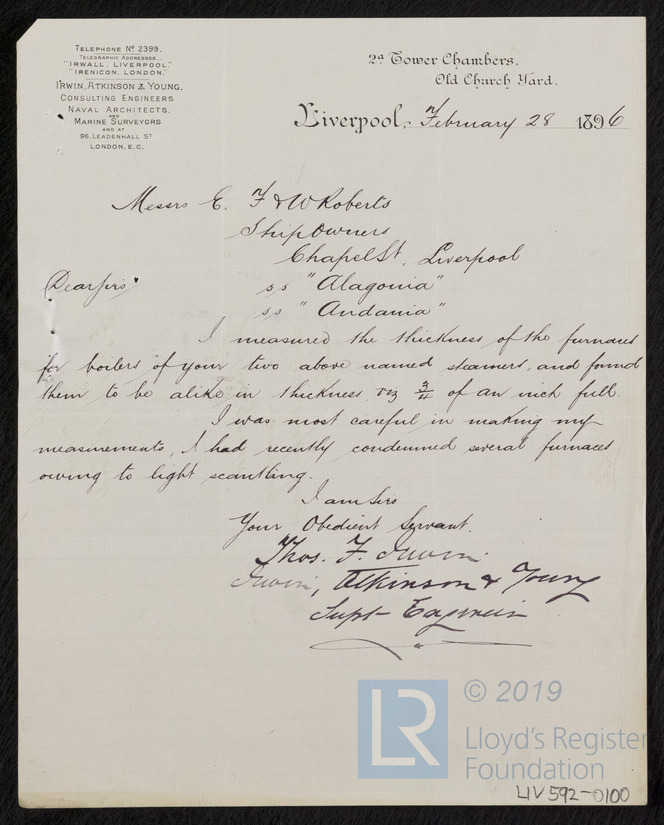 TELEPHONE Nº 2399.
TELEGRAPHIC ADDRESSES.
"IRWALL, LIVERPOOL."
"IRENICON, LONDON."
IRWIN, ATKINSON & YOUNG.
CONSULTING ENGINEERS
NAVAL ARCHITECTS.
AND
MARINE SURVEYORS
AND AT
96, LEADENHALL ST
LONDON, E.C.
2ª Tower Chambers.
Old Church Yard.
Liverpool, February 28 1896
Messrs E. F & W Roberts
Ship Owners
Chapel St, Liverpool
Dear Sirs
ss "Alagonia"
ss "Andania"
I measured the thickness of the furnaces
for boilers of your two above named steamers, and found
them to be alike in thickness, viz 3/4 of an inch full.
I was most careful in making my
measurements, I had recently condemned several furnaces
owing to light scantling.
I am Sirs
Your Obedient Servant.
Thos. F. Irwin.
Irwin, Atkinson & Young
Supt Engineers
LR
© 2019
Lloyd's Register
Foundation
LIV 592-0100